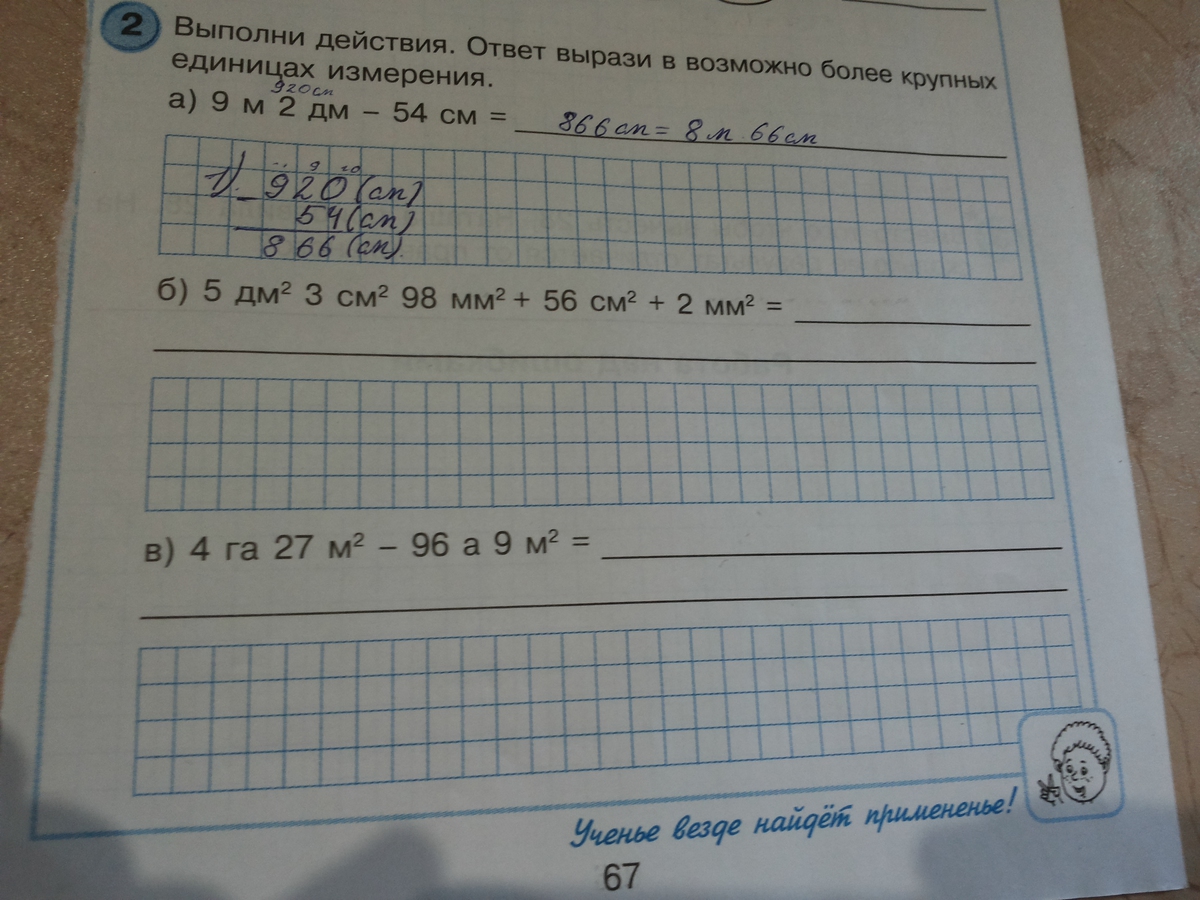 2 Выполни действия. Ответ вырази в возможно более крупных
единицах измерения.
920см
а) 9 м 2 дм – 54 см = 866см = 8м 66см
9 10
1) – 920 (см)
54 (см)
866 (см).
б) 5 дм² 3 см² 98 мм² + 56 см² + 2 мм² =
в) 4 га 27 м² – 96 а 9 м² =
Ученье везде найдёт примененье!
67